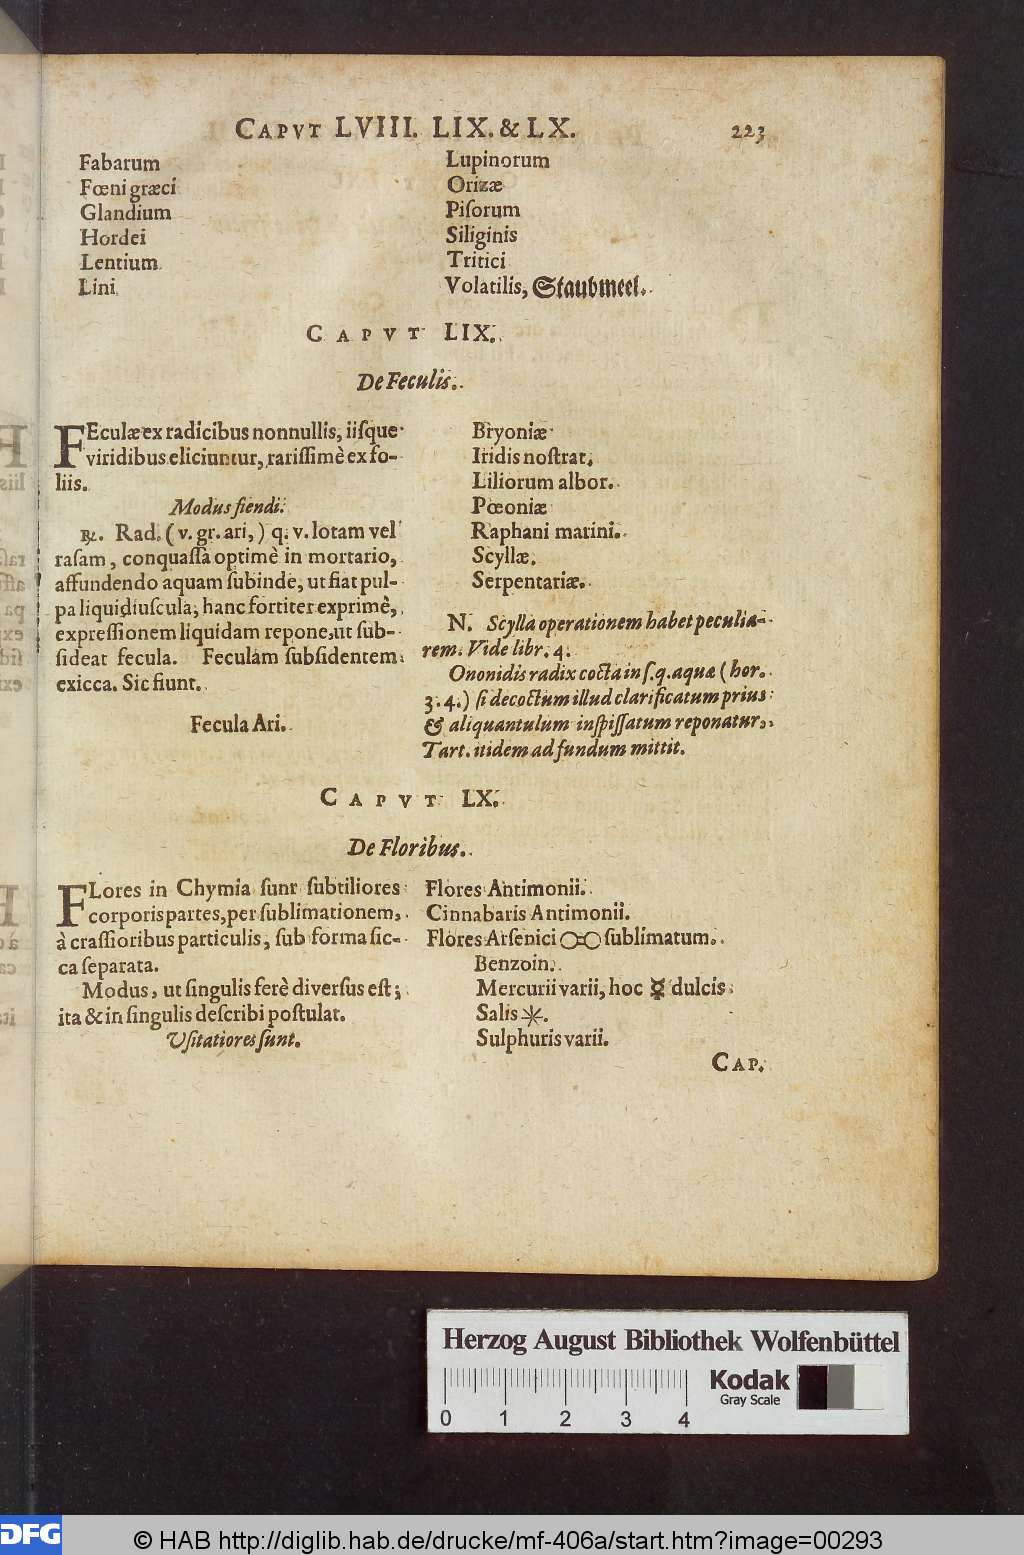 CAPVT LVIII. LIX. & LX. 223
Fabarum
Fœni græci
Glandium
Hordei
Lentium
Lini
Lupinorum
Orizæ
Piſorum
Siliginis
Tritici
Volatilis, Staubmeel.
CAPVT LIX.
De Feculis.
FEculæ ex radicibus nonnullis, iiſque
viridibus eliciuntur, rariſſimè ex fo-
liis.
Modus fiendi.
℞. Rad. ( v. gr. ari, ) q. v. lotam vel
raſam, conquaſſa optimè in mortario,
affundendo aquam ſubinde, ut fiat pul-
pa liquidiuſcula; hanc fortiter exprimè,
expreſſionem liquidam repone, ut ſub-
ſideat fecula. Feculam ſubſidentem
exicca. Sic fiunt.
Fecula Ari.
Bryoniæ
Iridis noſtrat.
Liliorum albor.
Pœoniæ
Raphani marini.
Scyllæ.
Serpentariæ.
N. Scylla operationem habet peculia-
rem. Vide libr. 4.
Ononidis radix cocta in ſ. q. aquæ ( hor.
3. 4. ) ſi decoctum illud clarificatum prius
& aliquantulum inſpiſſatum reponatur,
Tart. itidem ad fundum mittit.
CAPVT LX.
De Floribus.
FLores in Chymia ſunt ſubtiliores
corporis partes, per ſublimationem,
à craſſioribus particulis, ſub forma ſic-
ca ſeparata.
Modus, ut ſingulis ferè diverſus eſt;
ita & in ſingulis deſcribi poſtulat.
Vſitatiores ſunt.
Flores Antimonii.
Cinnabaris Antimonii.
Flores Arſenici ſublimatum.
Benzoin.
Mercurii varii, hoc ☿ dulcis
Salis ✳.
Sulphuris varii.
CAP.
Herzog August Bibliothek Wolfenbüttel
0 1 2 3 4
Kodak
Gray Scale
DFG
© HAB http://diglib.hab.de/drucke/mf-406a/start.htm?image=00293